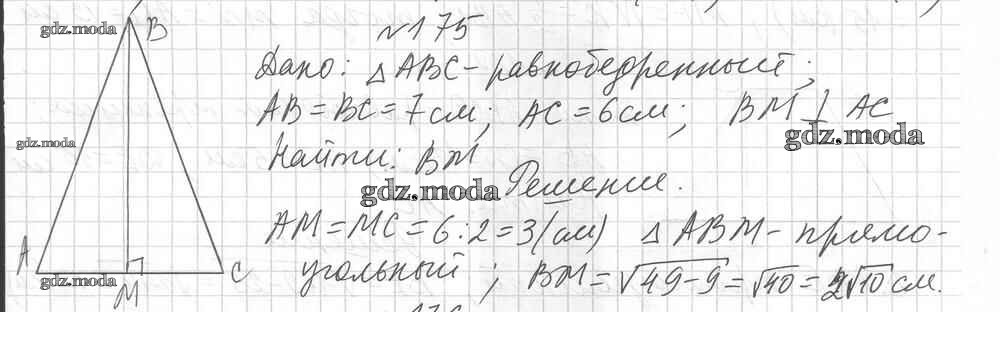 №175
B
gdz.moda
Дано: △ABC - равнобедренный;
AB = BC = 7 см; AC = 6 см; BM ⊥ AC
gdz.moda
gdz.moda
Найти: BM
gdz.moda
Решение.
AM = MC = 6 : 2 = 3 (см) △ABM - прямо-
угольный; BM = √49-9 = √40 = 2√10 см.
A
C
gdz.moda
M